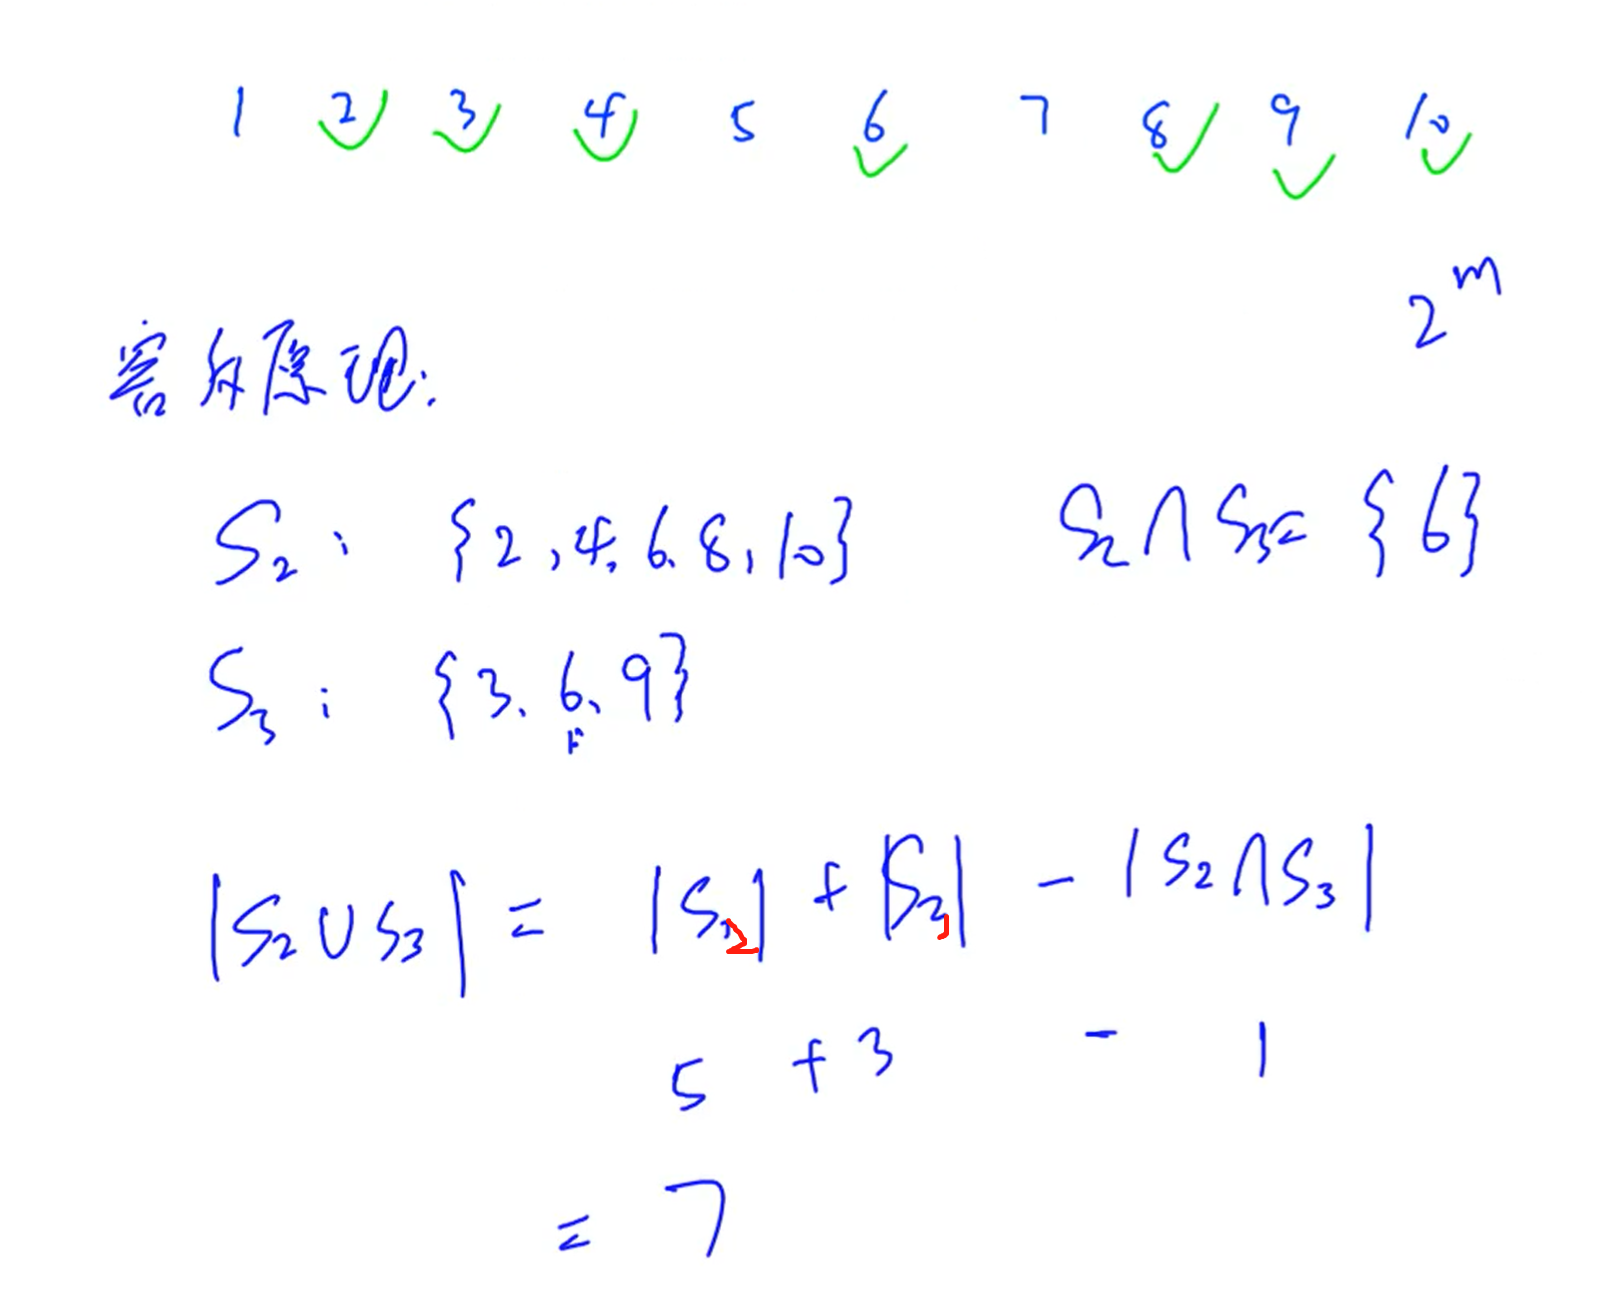 1 2 3 4 5 6 7 8 9 10
2^m
容斥原理:
S₂: {2,4,6,8,10} S₂∩S₃= {6}
S₃: {3,6,9}
|S₂∪S₃| = |S₂| + |S₃| - |S₂∩S₃|
5 + 3 - 1
= 7